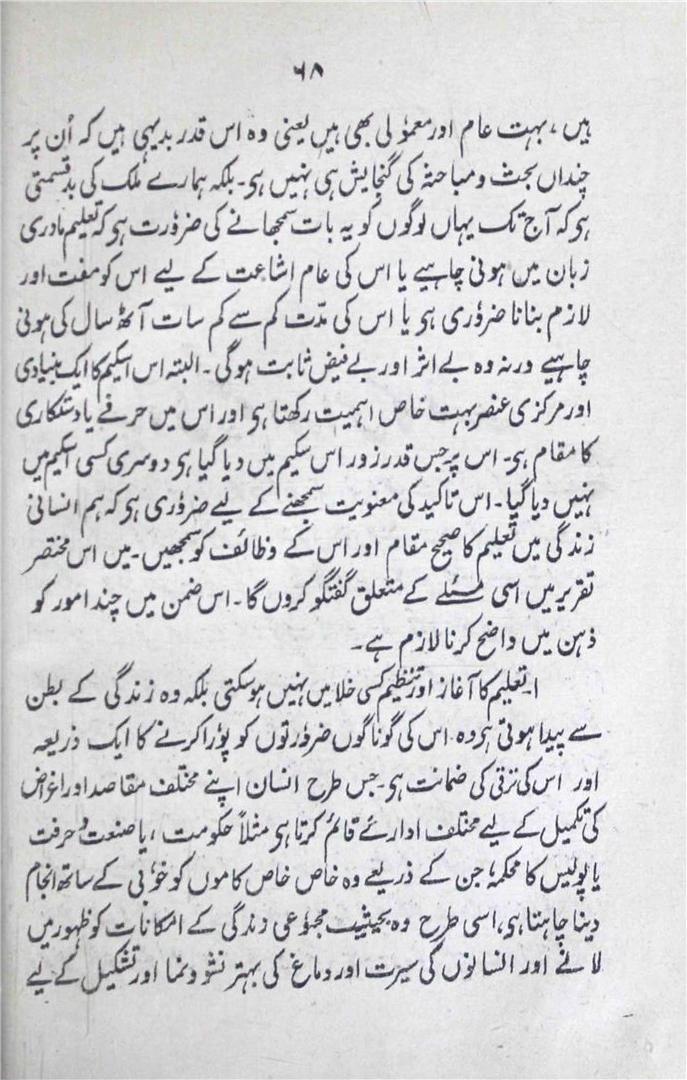 ۶۸
ہیں، بہت عام اور معمولی بھی ہیں یعنی وہ اس قدر بدیہی ہیں کہ اُن پر
چنداں بحث و مباحثہ کی گنجایش ہی نہیں ہی۔ بلکہ ہمارے ملک کی بدقسمتی
ہو کہ آج تک یہاں لوگوں کو یہ بات سمجھانے کی ضرورت ہو کہ تعلیم مادری
زبان میں ہونی چاہیے یا اس کی عام اشاعت کے لیے اس کو مفت اور
لازم بنانا ضروری ہو یا اس کی مدّت کم سے کم سات آٹھ سال کی ہونی
چاہیے ورنہ وہ بے اثر اور بے فیض ثابت ہوگی۔ البتہ اس اسکیم کا ایک بنیادی
اور مرکزی عنصر بہت خاص اہمیت رکھتا ہو اور اس میں حرفے یا دستکاری
کا مقام ہی۔ اس پر جس قدر زور اس سکیم میں دیا گیا ہو دوسری کسی اسکیم میں
نہیں دیا گیا۔ اس تاکید کی معنویت سمجھنے کے لیے ضروری ہو کہ ہم انسانی
زندگی میں تعلیم کا صحیح مقام اور اس کے وظائف کو سمجھیں۔ میں اس مختصر
تقریر میں اسی مسئلے کے متعلق گفتگو کروں گا۔ اس ضمن میں چند امور کو
ذہن میں واضح کرنا لازم ہے۔
۱۔ تعلیم کا آغاز اور تنظیم کسی خلا میں نہیں ہو سکتی بلکہ وہ زندگی کے بطن
سے پیدا ہوتی ہو وہ اس کی گوناگوں ضرورتوں کو پورا کرنے کا ایک ذریعہ
اور اس کی ترقی کی ضمانت ہی۔ جس طرح انسان اپنے مختلف مقاصد اور اغراض
کی تکمیل کے لیے مختلف ادارے قائم کرتا ہو مثلاً حکومت، یا صنعت و حرفت
یا پولیس کا محکمہ؛ جن کے ذریعے وہ خاص خاص کاموں کو خوبی کے ساتھ انجام
دینا چاہتا ہو، اسی طرح وہ بحیثیت مجموعی زندگی کے امکانات کو ظہور میں
لانے اور انسانوں کی سیرت اور دماغ کی بہتر نشو و نما اور تشکیل کے لیے